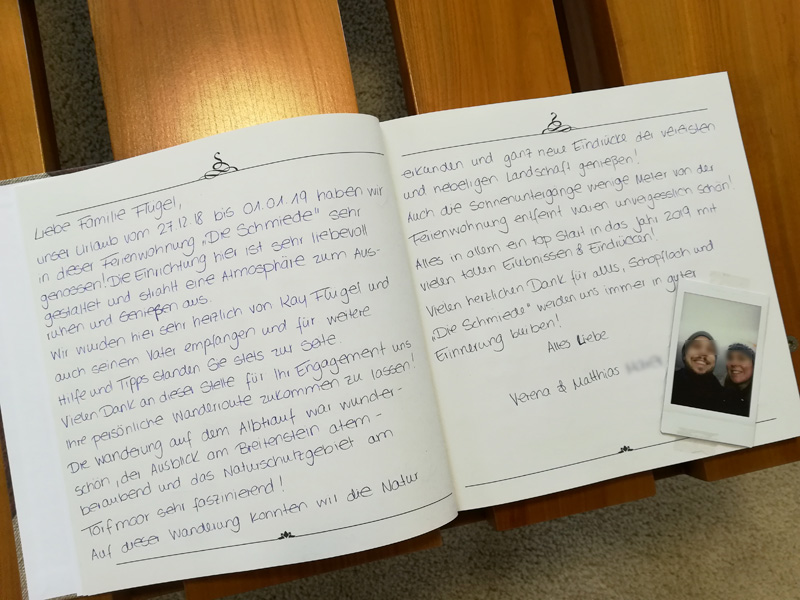 Liebe Familie Flügel,
unser Urlaub vom 27.12.18 bis 01.01.19 haben wir
in dieser Ferienwohnung „Die Schmiede" sehr
genossen! Die Einrichtung hier ist sehr liebevoll
gestaltet und strahlt eine Atmosphäre zum Aus-
ruhen und Genießen aus.
Wir wurden hier sehr herzlich von Kay Flügel und
auch seinem Vater empfangen und für weitere
Hilfe und Tipps standen Sie stets zur Seite.
Vielen Dank an dieser Stelle für Ihr Engagement uns
Ihre persönliche Wanderroute zukommen zu lassen!
Die Wanderung auf dem Albtrauf war wunder-
schön, der Ausblick am Breitenstein atem-
beraubend und das Naturschutzgebiet am
Torfmoor sehr faszinierend!
Auf dieser Wanderung konnten wir die Natur
erkunden und ganz neue Eindrücke der vereisten
und nebeligen Landschaft genießen!
Auch die Sonnenuntergänge wenige Meter von der
Ferienwohnung entfernt waren unvergesslich schön!
Alles in allem ein top Start in das Jahr 2019 mit
vielen tollen Erlebnissen & Eindrücken!
Vielen herzlichen Dank für alles, Schopfloch und
„Die Schmiede" werden uns immer in guter
Erinnerung bleiben!
Alles Liebe
Verena & Matthias